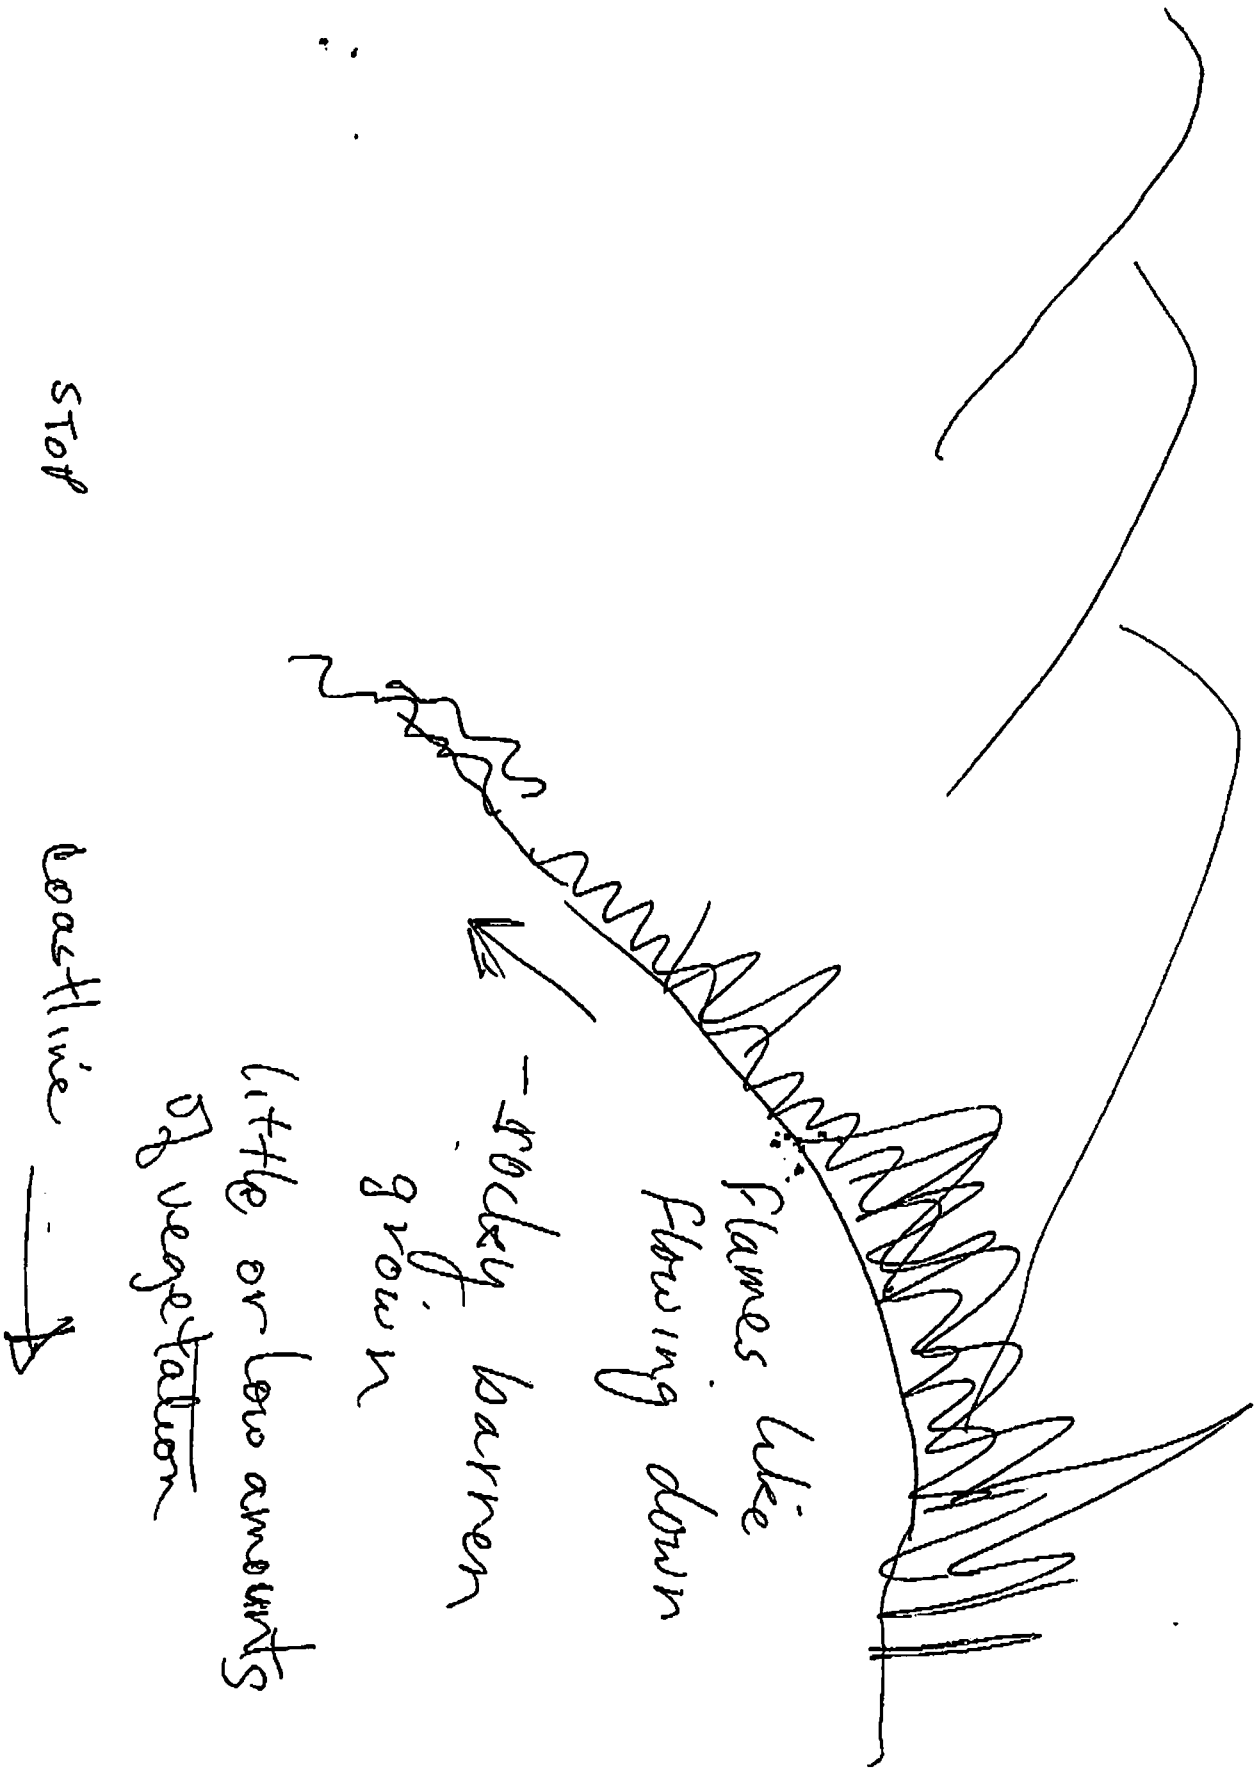 flames like
flowing down
- rocky barren
groin
little or low amounts
of vegetation
coastline
STOP